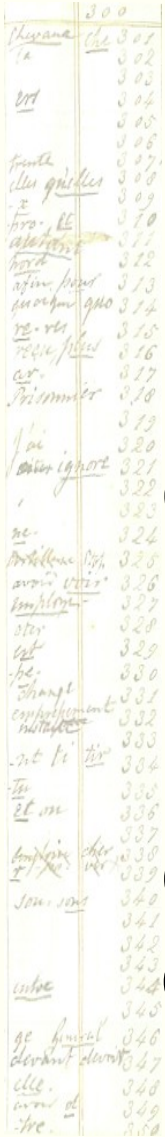 300
che 301
la 302
303
ent 304
305
306
trente 307
elles qu'elles 308
x 309
pro. et 310
autant 311
nord 312
afin pour 313
quoique quo 314
re-res 315
reçu plus 316
ar. 317
Prisonnier 318
319
j'ai 320
ignore 321
322
323
ne. 324
Artillerie 325
avoir voir 326
employe 327
oter 328
est 329
pe. 330
change 331
332
333
nt ti tir 334
tu 335
et on 336
337
cher 338
339
son. sont 340
341
342
343
entre 344
345
ge general 346
devant devoir 347
elle. 348
avon et 349
tre. 350